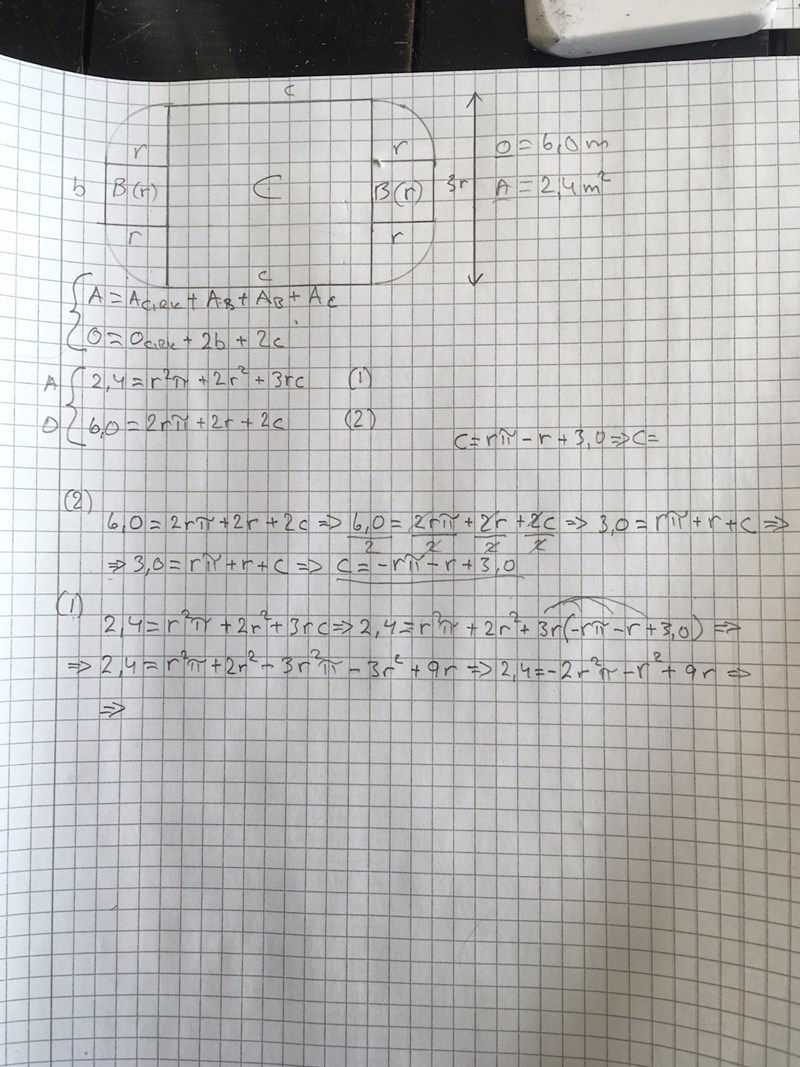 c
r r
b B(r) C B(r) 3r
r r
c
O = 6,0 m
A = 2,4 m²
A = Acirk + AB + AB + AC
O = Ocirk + 2b + 2c
A 2,4 = r²π + 2r² + 3rc (1)
O 6,0 = 2rπ + 2r + 2c (2)
C = rπ - r + 3,0 ⇒ C =
(2)
6,0 = 2rπ + 2r + 2c ⇒ 6,0/2 = 2rπ/2 + 2r/2 + 2c/2 ⇒ 3,0 = rπ + r + c ⇒
⇒ 3,0 = rπ + r + c ⇒ c = -rπ - r + 3,0
(1)
2,4 = r²π + 2r² + 3rc ⇒ 2,4 = r²π + 2r² + 3r(-rπ - r + 3,0) ⇒
⇒ 2,4 = r²π + 2r² - 3r²π - 3r² + 9r ⇒ 2,4 = -2r²π - r² + 9r ⇒
⇒